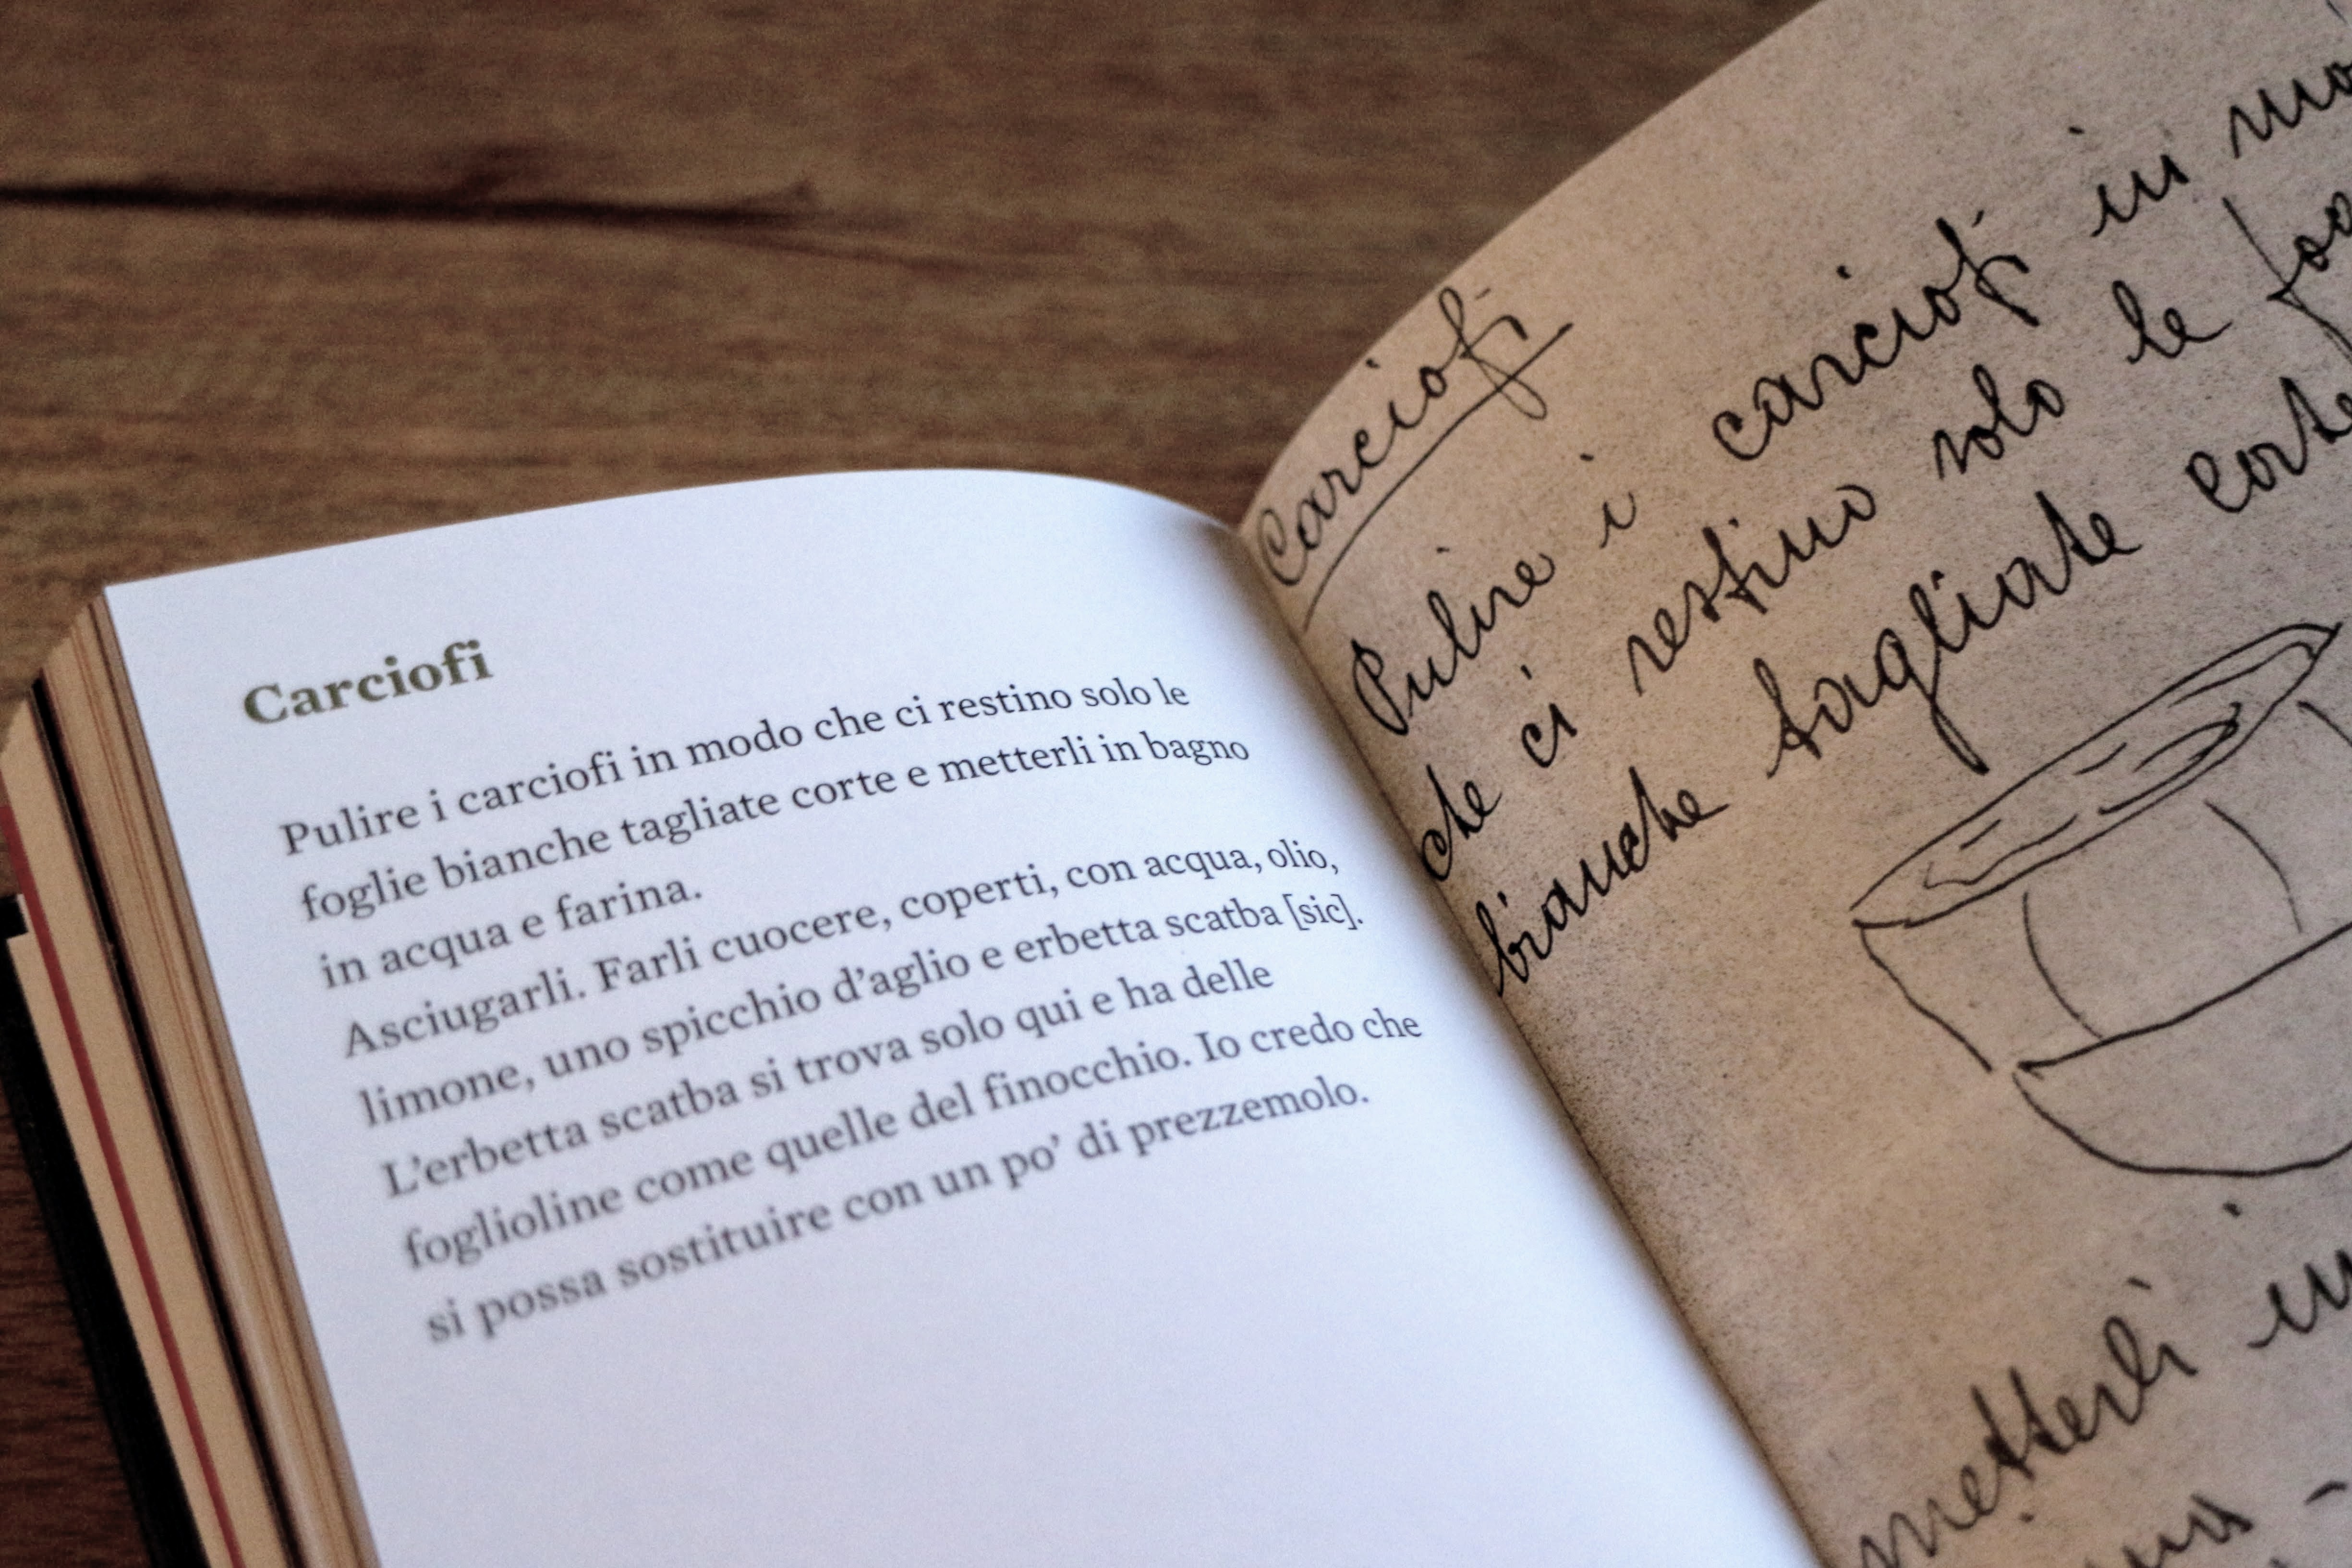 Carciofi
Pulire i carciofi in modo che ci restino solo le
foglie bianche tagliate corte e metterli in bagno
in acqua e farina.
Asciugarli. Farli cuocere, coperti, con acqua, olio,
limone, uno spicchio d’aglio e erbetta scatba [sic].
L’erbetta scatba si trova solo qui e ha delle
foglioline come quelle del finocchio. Io credo che
si possa sostituire con un po’ di prezzemolo.
Carciofi
Pulire i carciofi in
che ci restino solo le
bianche tagliate corte
metterli in